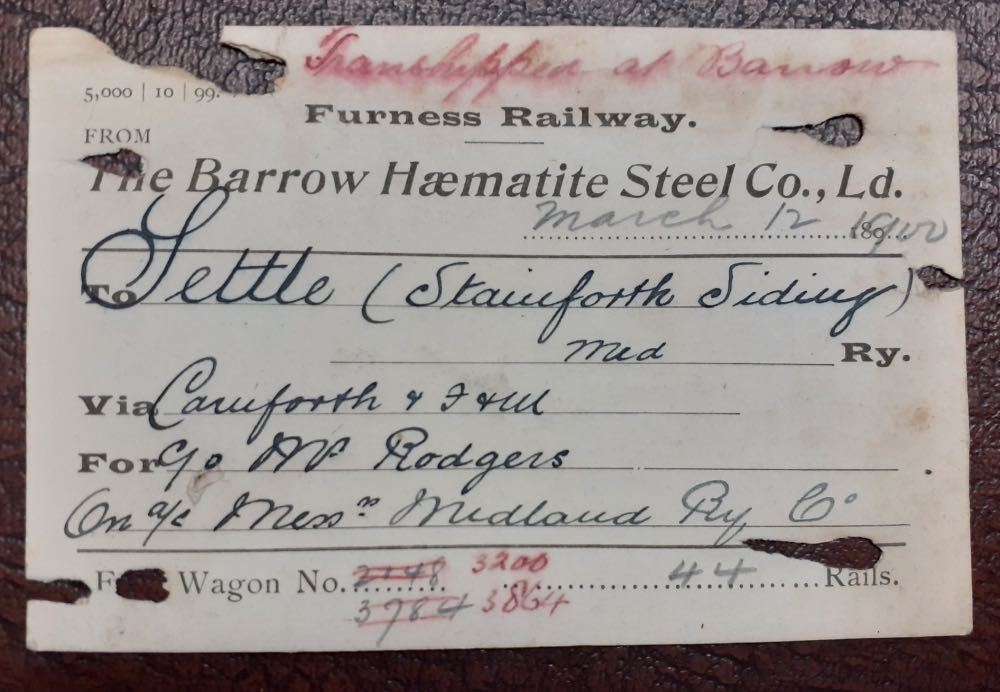 Transhipped at Barrow
5,000 | 10 | 99.
Furness Railway.
FROM
The Barrow Hæmatite Steel Co., Ld.
March 12 1900
To Settle (Stainforth Siding)
Mid Ry.
Via Carnforth & F & M
For c/o Mr Rodgers
On a/c Messrs Midland Ry Co
Wagon No. 2148 3200 44 Rails.
3784 3864